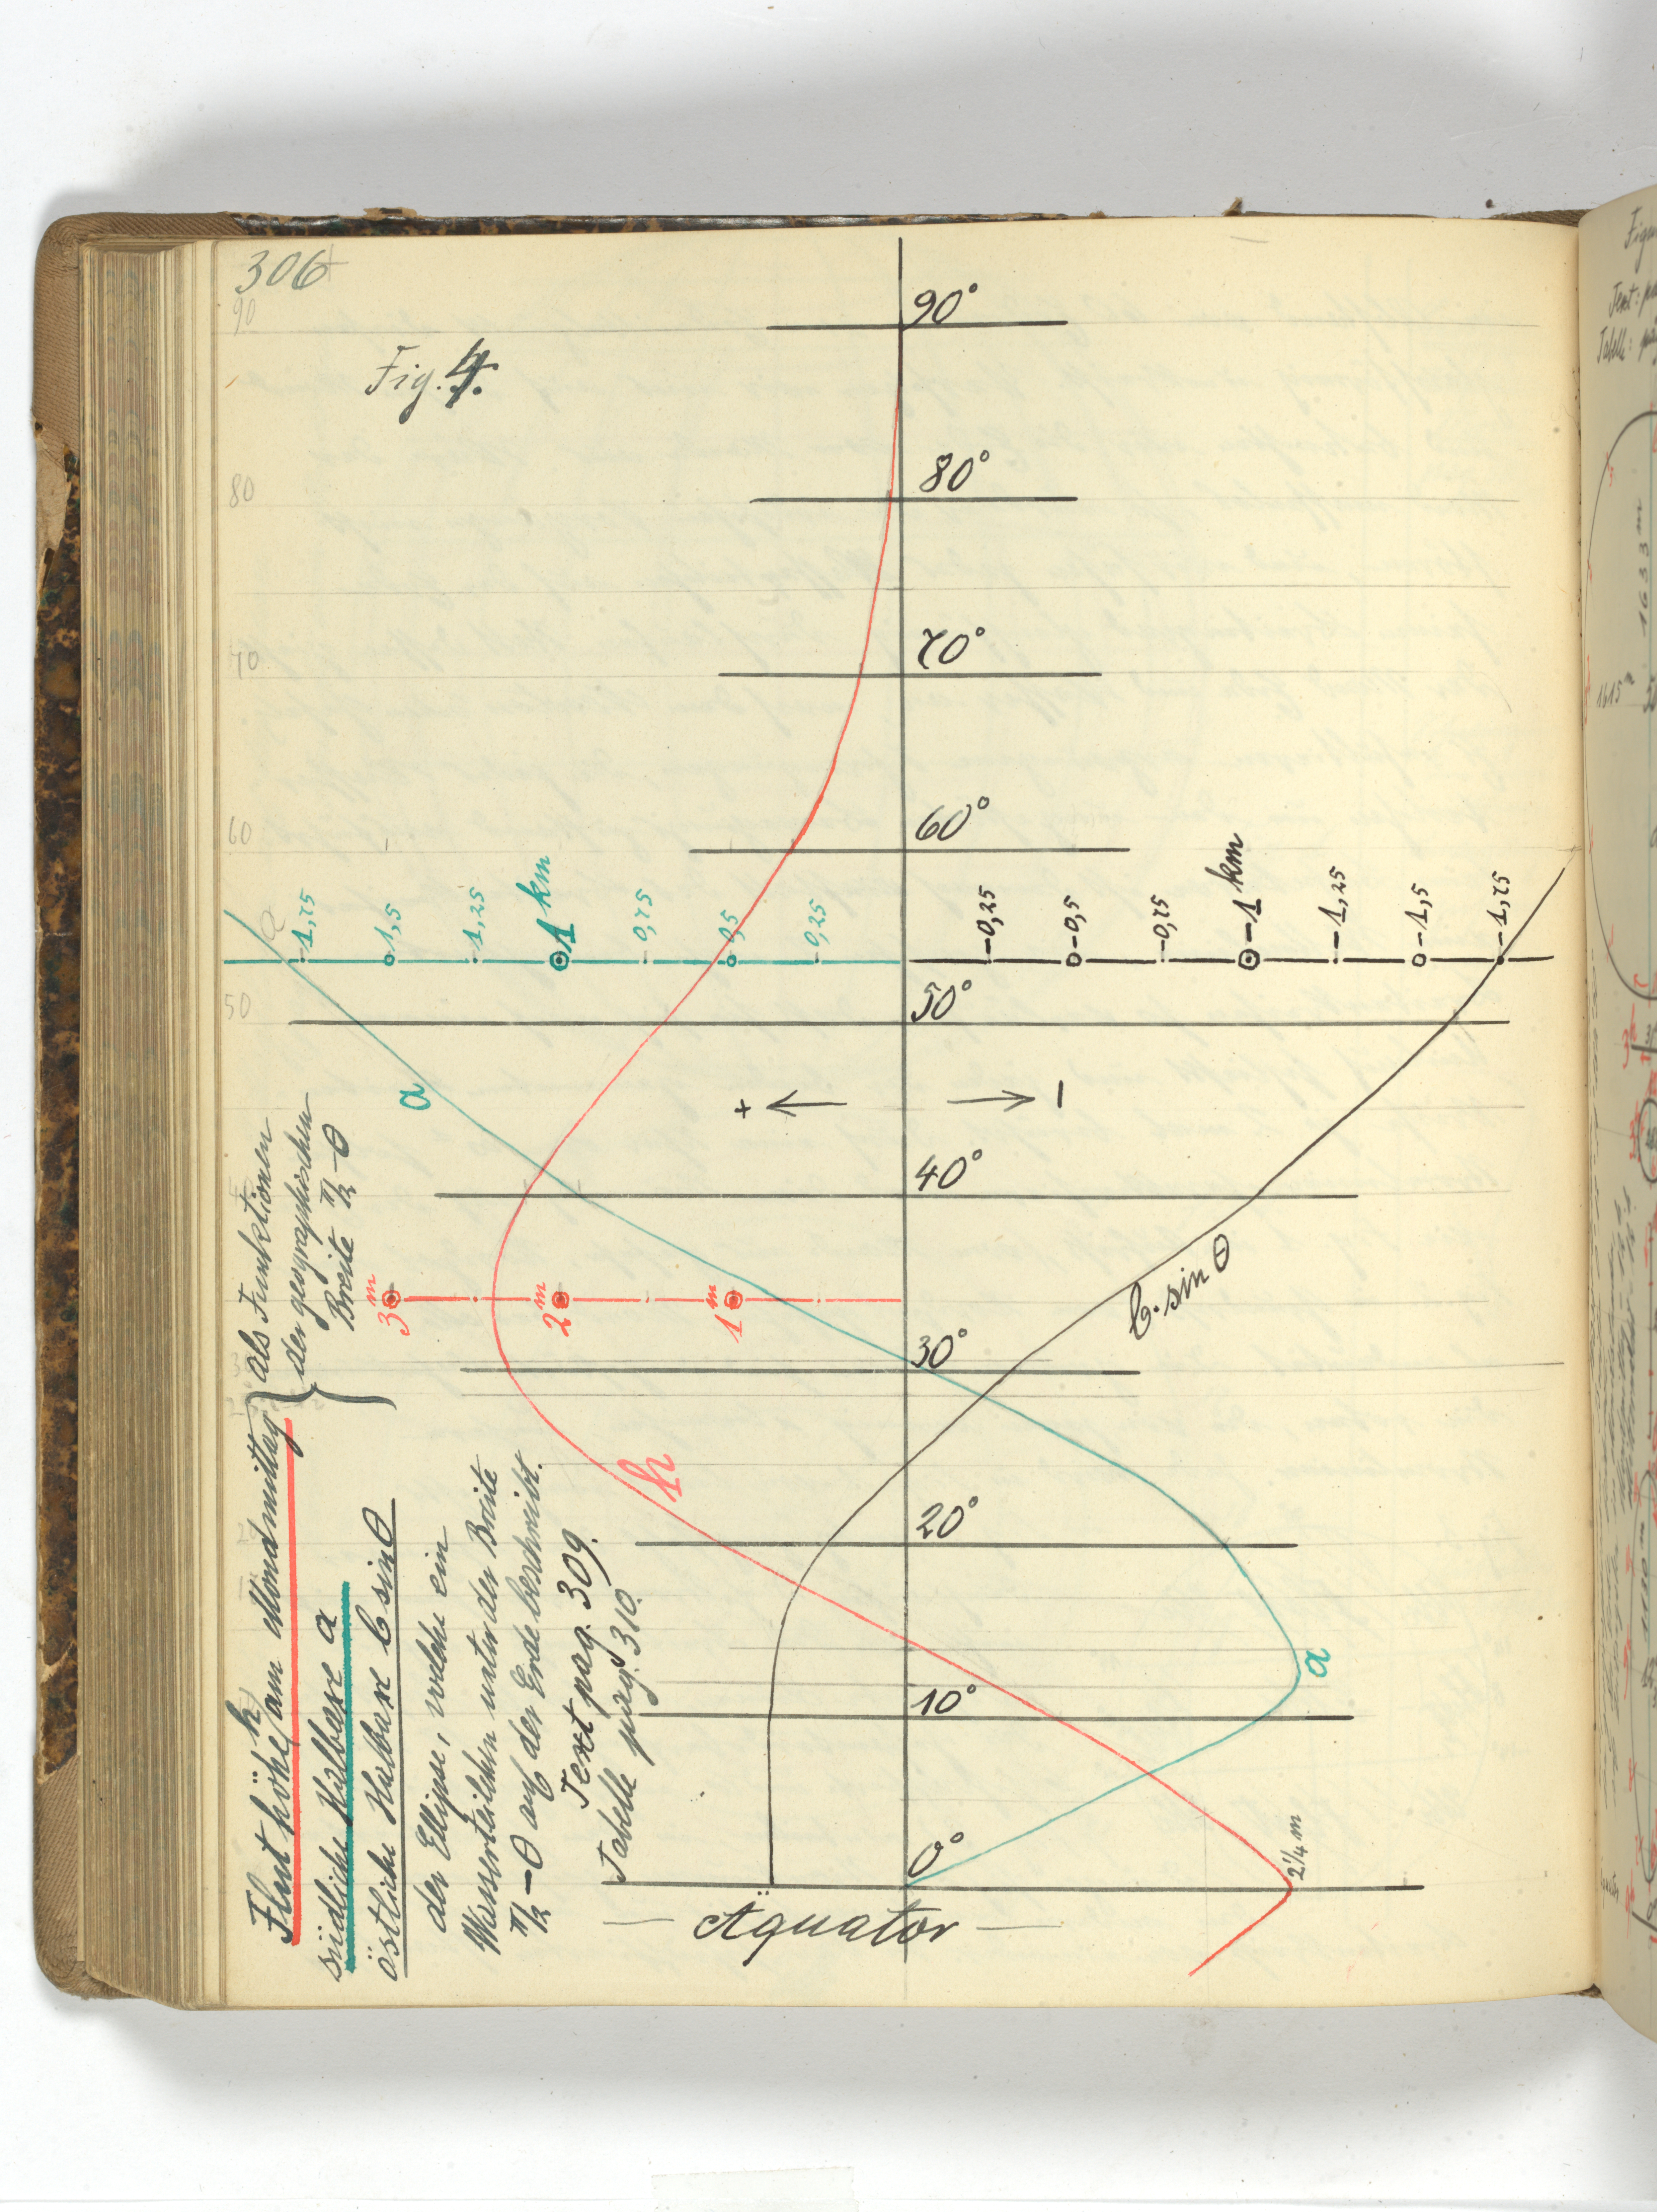 306
90
Fig. 4.
90°
80°
80
70°
70
60°
60
1,75
1,5
1,25
1 km
0,75
0,5
0,25
-0,25
-0,5
-0,75
-1 km
-1,25
-1,5
-1,75
50°
50
a
+ ← → -
40°
3 m
2 m
1 m
b·sin θ
30°
h
20°
10°
a
0°
2 1/4 m
— Äquator —
Fluthöhe h am Mondmittag
südliche Halbaxe a
östliche Halbaxe b sin θ
als Funktionen
der geographischen
Breite π/2 - θ
der Ellipse, welche ein
Wasserteilchen unter der Breite
π/2 - θ auf der Erde beschreibt.
Text pag. 309.
Tabelle pag. 310.
Text: 
Tabelle:
1633 m
1615 m